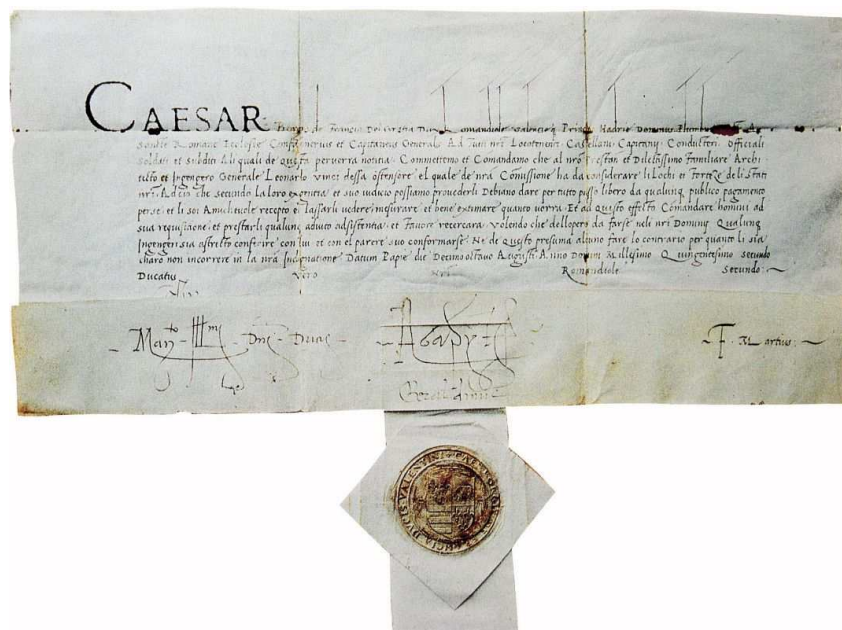 CAESAR Borgia de Francia Dei Gratia Dux Romandiole Valencieq Princeps Hadrie Dominus Plumbini
Romane Ecclesie Confalonerius et Capitaneus Generalis Ad Tutti nri Locotenenti Castellani Capitanij Conducteri Officiali
Soldati et Subditi A li quali de questa perverra notitia Commettemo et Comandamo che al nro Prestan et Dilectissimo Familiare Archi
tecto et Ingegnero Generale Leonardo Vinci dessa ostensore el quale de nra Comissione ha da considerare li Lochi et Forteze de li Stati
nri Ad cio che secundo la loro exigentia et suo iudicio possiamo provederli Debiano dare per tutto passo libero da qualunq publico pagamento
per se et li soi Amichevole recepto et lassarli vedere, mesurare et bene extimare quanto vorra Et ad questo effecto Comandare homini ad
sua requisitione et prestarli qualunq adiuto adsistentia et Favore recercara Volendo che dellopere da farse neli nri Dominij Qualunq
Ingegneri sia astrecto conferire con lui et con el parere suo conformarse Ne de questo presuma alcuno fare lo contrario per quanto li sia
charo non incorrere in la nra Indignatione Datum Papie die Decimo octavo Augusti Anno Domini Millesimo Quingentesimo Secundo
Ducatus Vero Nri Romandiole Secundo
F. Martius
DVCIS VALENTINI